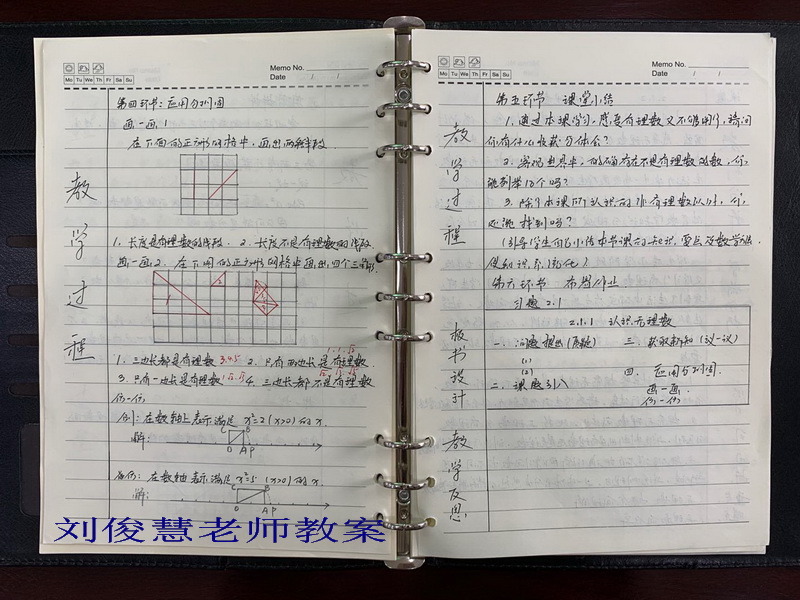 Memo No.
Mo Tu We Th Fr Sa Su
Date / /
教学过程
第四环节：应用与巩固
画一画1
在下面的正方形网格中，画出两条线段
1. 长度是有理数的线段. 2. 长度不是有理数的线段
画一画2. 在下图的正方形网格中画出四个三角形.
1
2
1. 三边长都是有理数 3.4.5 2. 只有两边长是有理数
3. 只有一边长是有理数 4. 三边长都不是有理数
仿一仿
例：在数轴上表示满足 x²=2 (x>0) 的 x.
解：
C B
O A P
仿：在数轴表示满足 x²=5 (x>0) 的 x
解：
C B
O A P
刘俊慧老师教案
Memo No.
Mo Tu We Th Fr Sa Su
Date / /
教学过程
第五环节 课堂小结
1. 通过本课学习，感受有理数又不够用了，请问
你有什么收获与体会？
2. 客观世界中，的确存在不是有理数的数，你
能列举几个吗？
3. 除了本课所认识的非有理数以外，你
还能找到吗？
(引导学生自己小结本节课的知识要点及数学方法.
使知识系统化)
第六环节 布置作业
习题2.1
板书设计
2.1.1 认识无理数
一. 问题提出 三. 获取新知 (议一议)
(1)
(2) 四. 应用与巩固
二. 课题引入 画一画.
仿一仿
教学反思